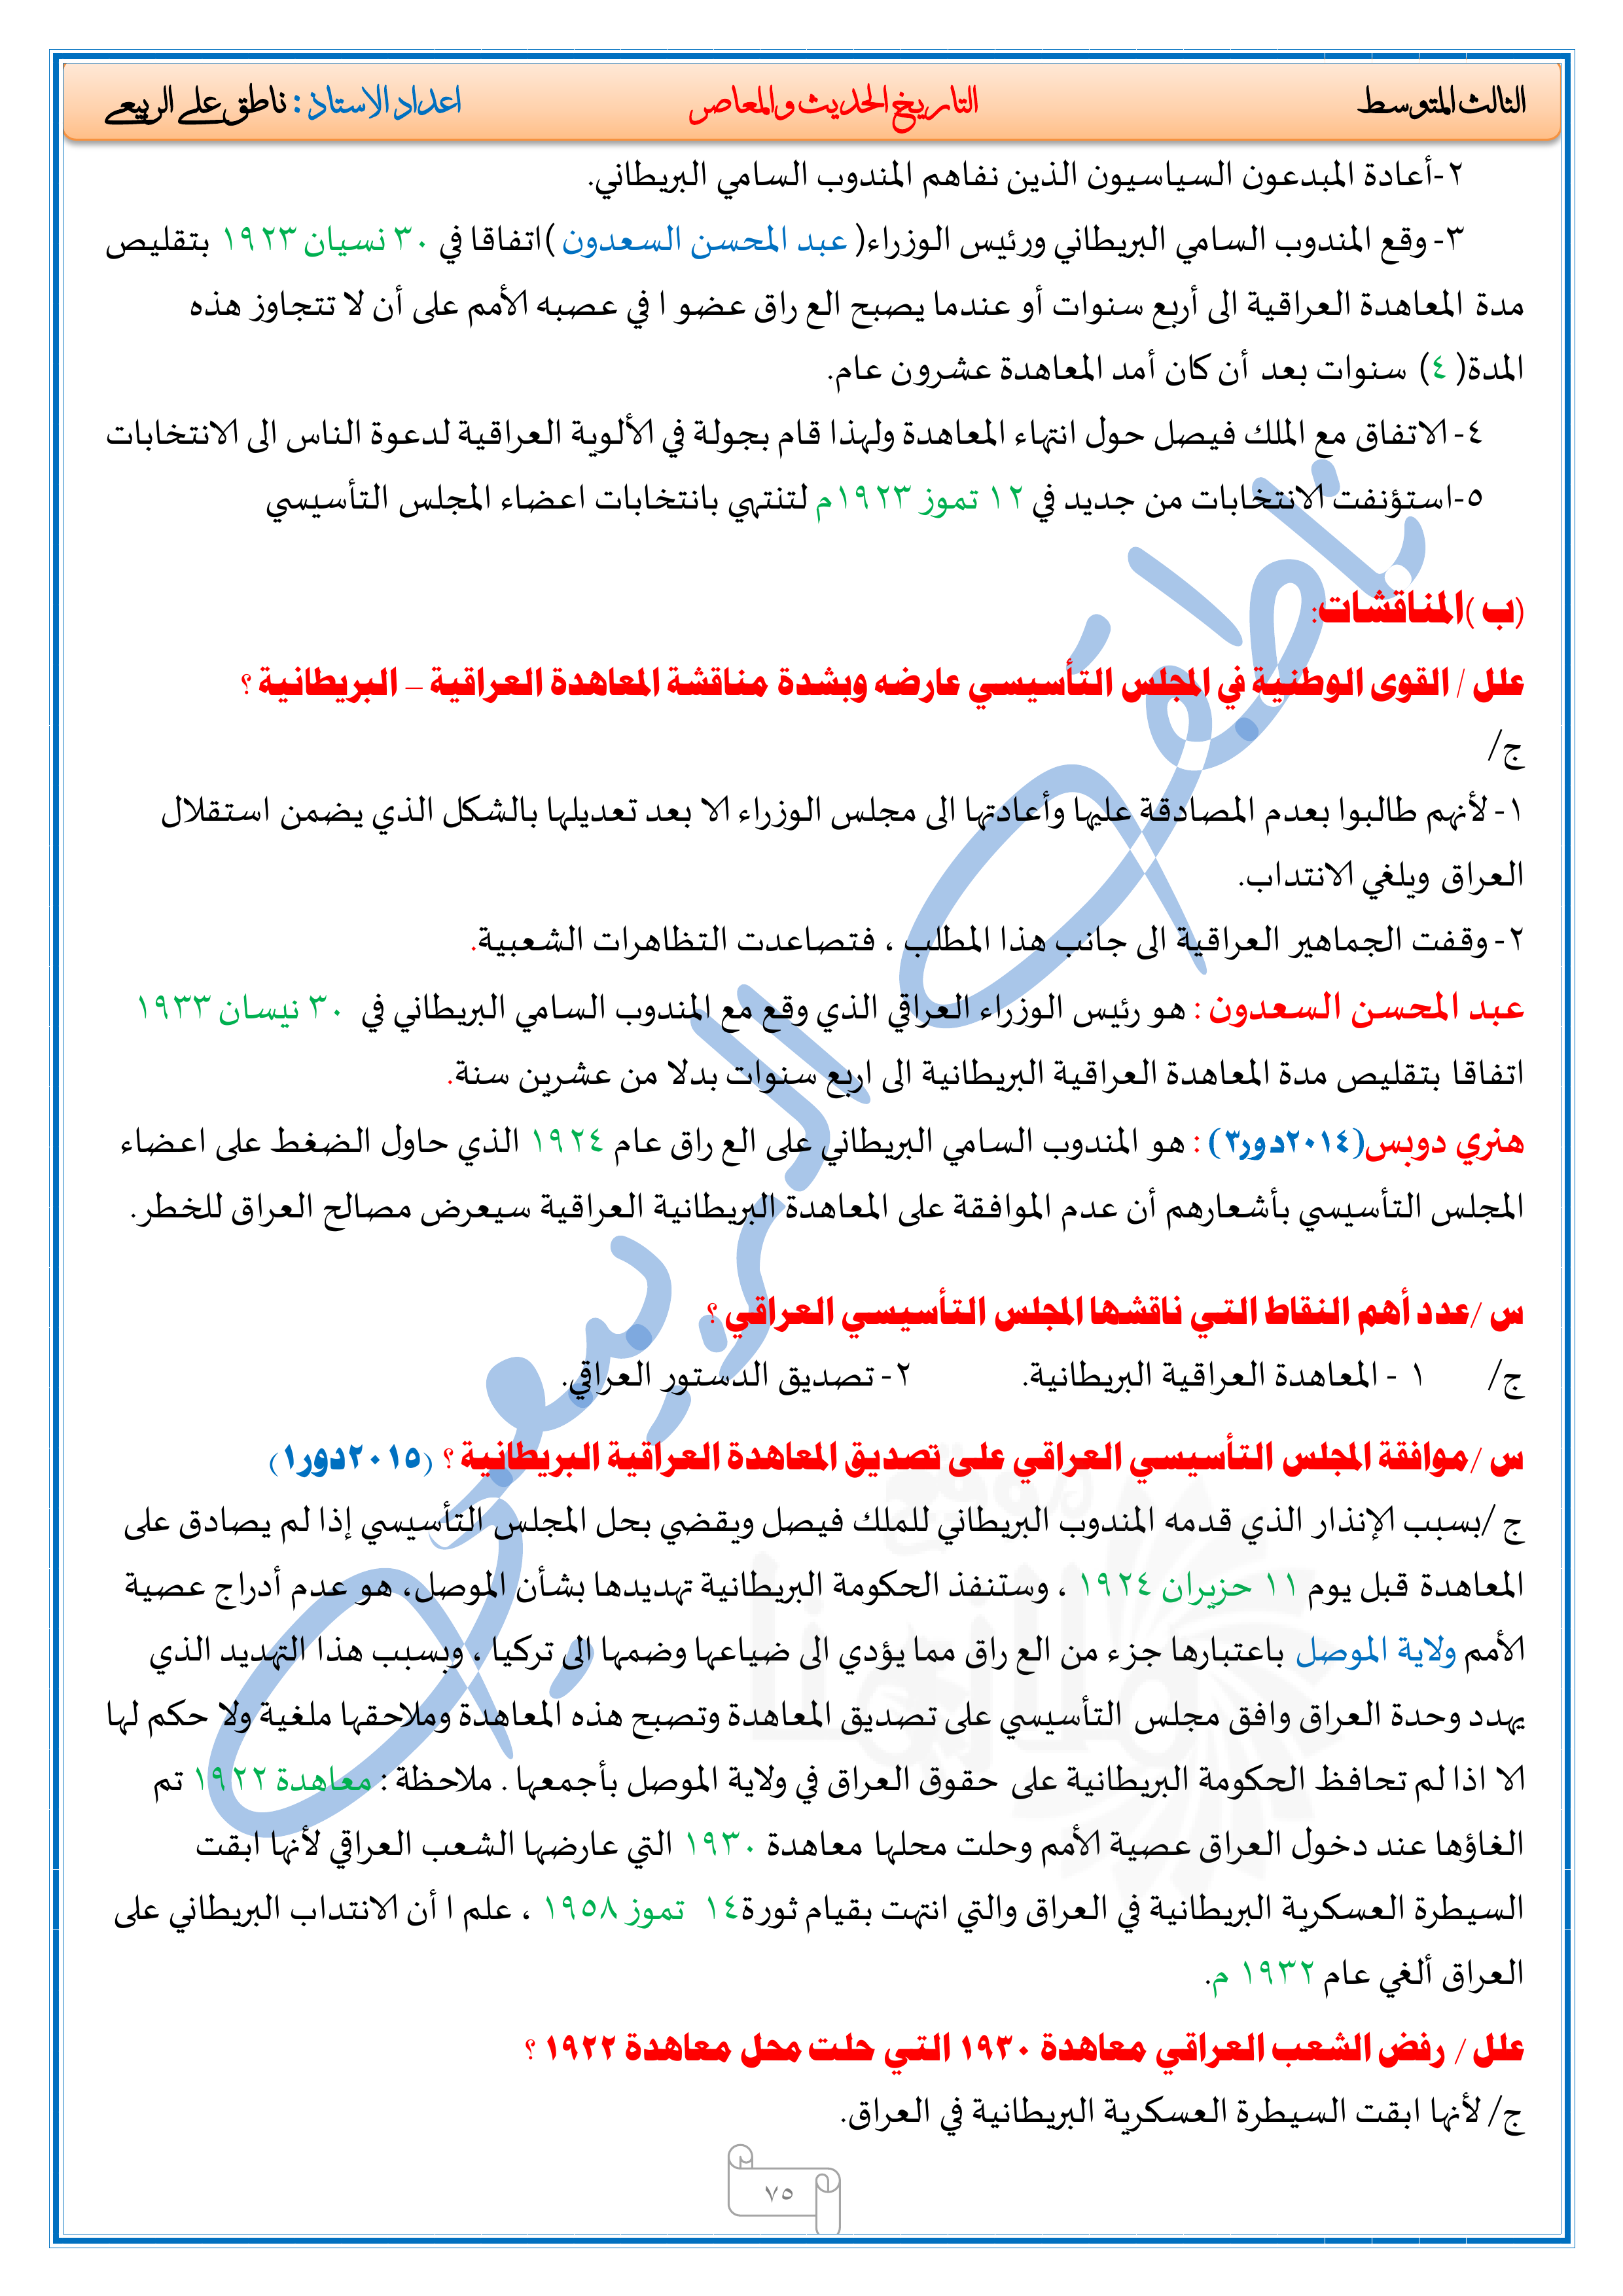 الثالث المتوسط التاريخ الحديث والمعاصر اعداد الاستاذ : ناطق علي الربيعي
٢-أعادة المبدعون السياسيون الذين نفاهم المندوب السامي البريطاني.
٣- وقع المندوب السامي البريطاني ورئيس الوزراء( عبد المحسن السعدون )اتفاقا في ٣٠ نسيان ١٩٢٣ بتقليص
مدة المعاهدة العراقية الى أربع سنوات أو عندما يصبح الع راق عضو ا في عصبه الأمم على أن لا تتجاوز هذه
المدة( ٤) سنوات بعد أن كان أمد المعاهدة عشرون عام.
٤- الاتفاق مع الملك فيصل حول انتهاء المعاهدة ولهذا قام بجولة في الألوية العراقية لدعوة الناس الى الانتخابات
٥-استؤنفت الانتخابات من جديد في ١٢ تموز ١٩٢٣م لتنتهي بانتخابات اعضاء المجلس التأسيسي
(ب )المناقشات:
علل / القوى الوطنية في المجلس التأسيسي عارضه وبشدة مناقشة المعاهدة العراقية – البريطانية ؟
ج/
١- لأنهم طالبوا بعدم المصادقة عليها وأعادتها الى مجلس الوزراء الا بعد تعديلها بالشكل الذي يضمن استقلال
العراق ويلغي الانتداب.
٢- وقفت الجماهير العراقية الى جانب هذا المطلب ، فتصاعدت التظاهرات الشعبية.
عبد المحسن السعدون : هو رئيس الوزراء العراقي الذي وقع مع المندوب السامي البريطاني في ٣٠ نيسان ١٩٣٣
اتفاقا بتقليص مدة المعاهدة العراقية البريطانية الى اربع سنوات بدلا من عشرين سنة.
هنري دوبس(٢٠١٤دور٣) : هو المندوب السامي البريطاني على الع راق عام ١٩٢٤ الذي حاول الضغط على اعضاء
المجلس التأسيسي بأشعارهم أن عدم الموافقة على المعاهدة البريطانية العراقية سيعرض مصالح العراق للخطر.
س /عدد أهم النقاط التي ناقشها المجلس التأسيسي العراقي ؟
ج/ ١ - المعاهدة العراقية البريطانية. ٢- تصديق الدستور العراقي.
س /موافقة المجلس التأسيسي العراقي على تصديق المعاهدة العراقية البريطانية ؟ (٢٠١٥دور١)
ج /بسبب الإنذار الذي قدمه المندوب البريطاني للملك فيصل ويقضي بحل المجلس التأسيسي إذا لم يصادق على
المعاهدة قبل يوم ١١ حزيران ١٩٢٤ ، وستنفذ الحكومة البريطانية تهديدها بشأن الموصل، هو عدم أدراج عصية
الأمم ولاية الموصل باعتبارها جزء من الع راق مما يؤدي الى ضياعها وضمها الى تركيا ، وبسبب هذا التهديد الذي
يهدد وحدة العراق وافق مجلس التأسيسي على تصديق المعاهدة وتصبح هذه المعاهدة وملاحقها ملغية ولا حكم لها
الا اذا لم تحافظ الحكومة البريطانية على حقوق العراق في ولاية الموصل بأجمعها . ملاحظة : معاهدة ١٩٢٢ تم
الغاؤها عند دخول العراق عصية الأمم وحلت محلها معاهدة ١٩٣٠ التي عارضها الشعب العراقي لأنها ابقت
السيطرة العسكرية البريطانية في العراق والتي انتهت بقيام ثورة١٤ تموز ١٩٥٨ ، علم ا أن الانتداب البريطاني على
العراق ألغي عام ١٩٣٢ م.
علل / رفض الشعب العراقي معاهدة ١٩٣٠ التي حلت محل معاهدة ١٩٢٢ ؟
ج/ لأنها ابقت السيطرة العسكرية البريطانية في العراق.
٧٥
ناطق علي الربيعي